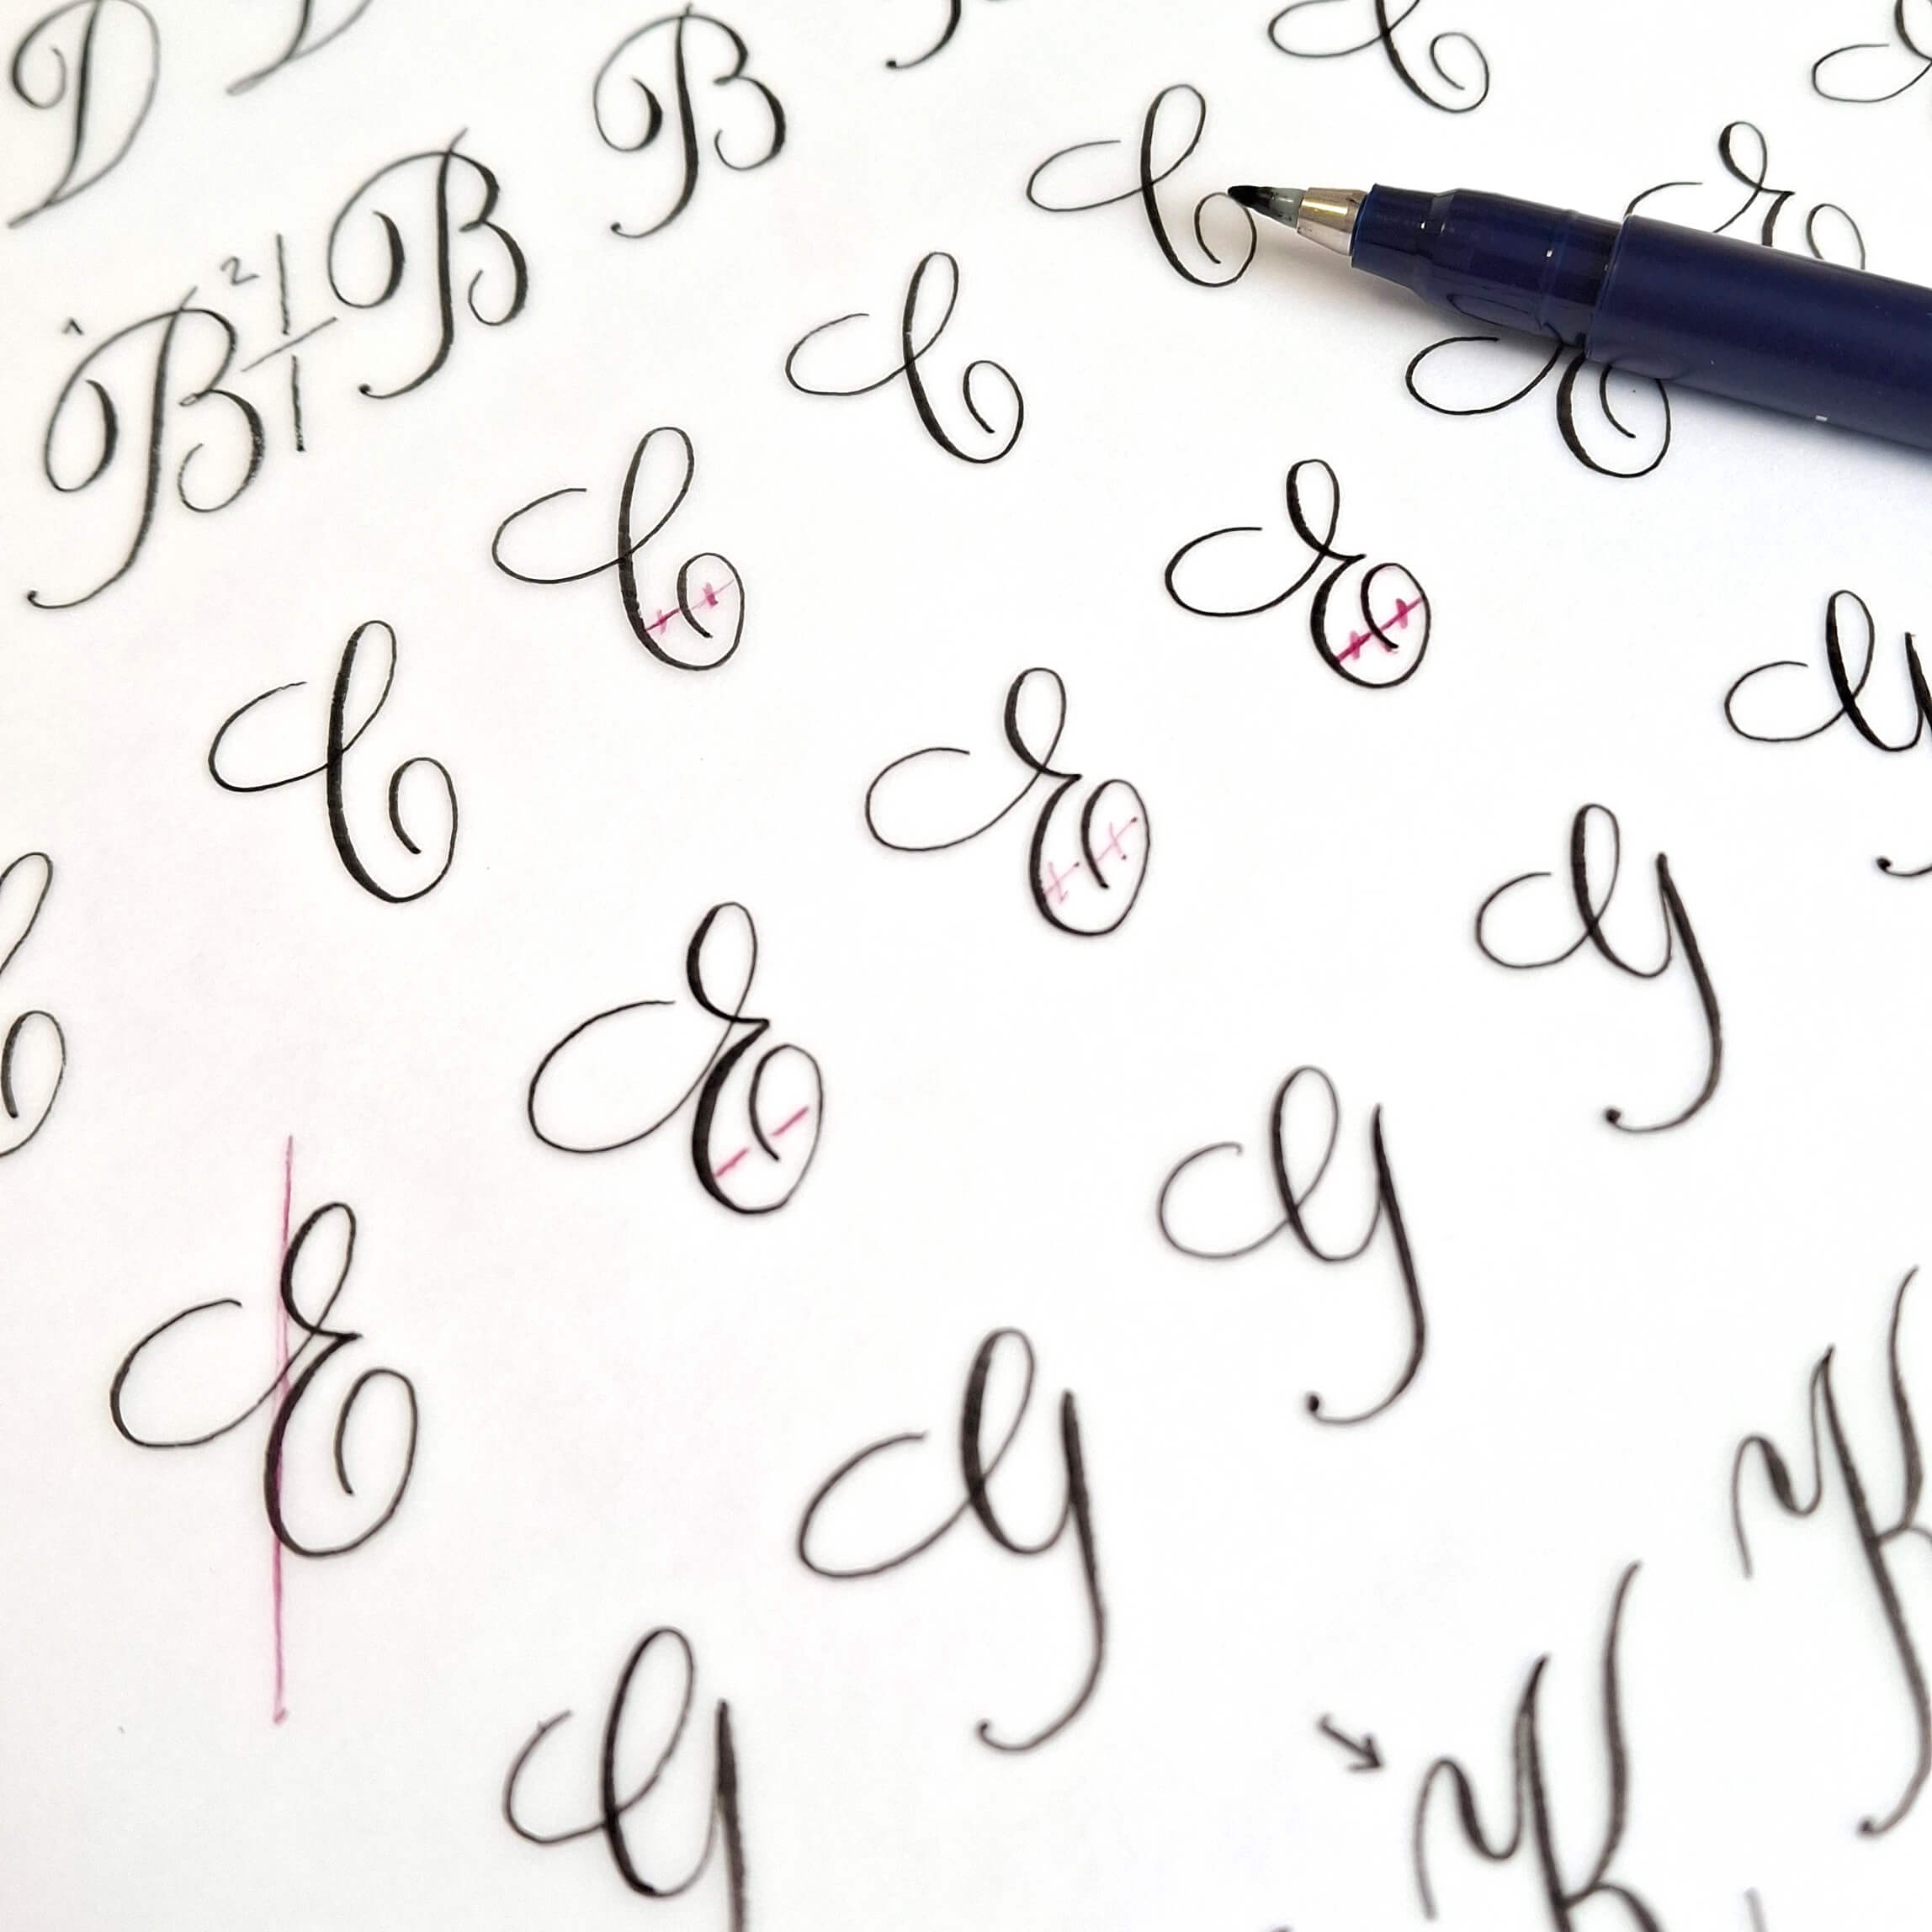 D
B B B
C C C C C
E E E E E E
G G G G G
K K
1
2